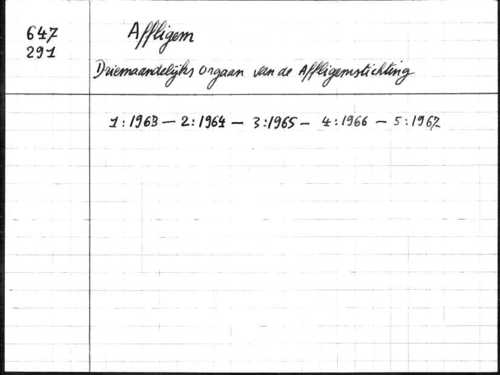 647 Affligem
291
Driemaandelijks orgaan van de Affligemstichting
1:1963 — 2:1964 — 3:1965 — 4:1966 — 5:1967